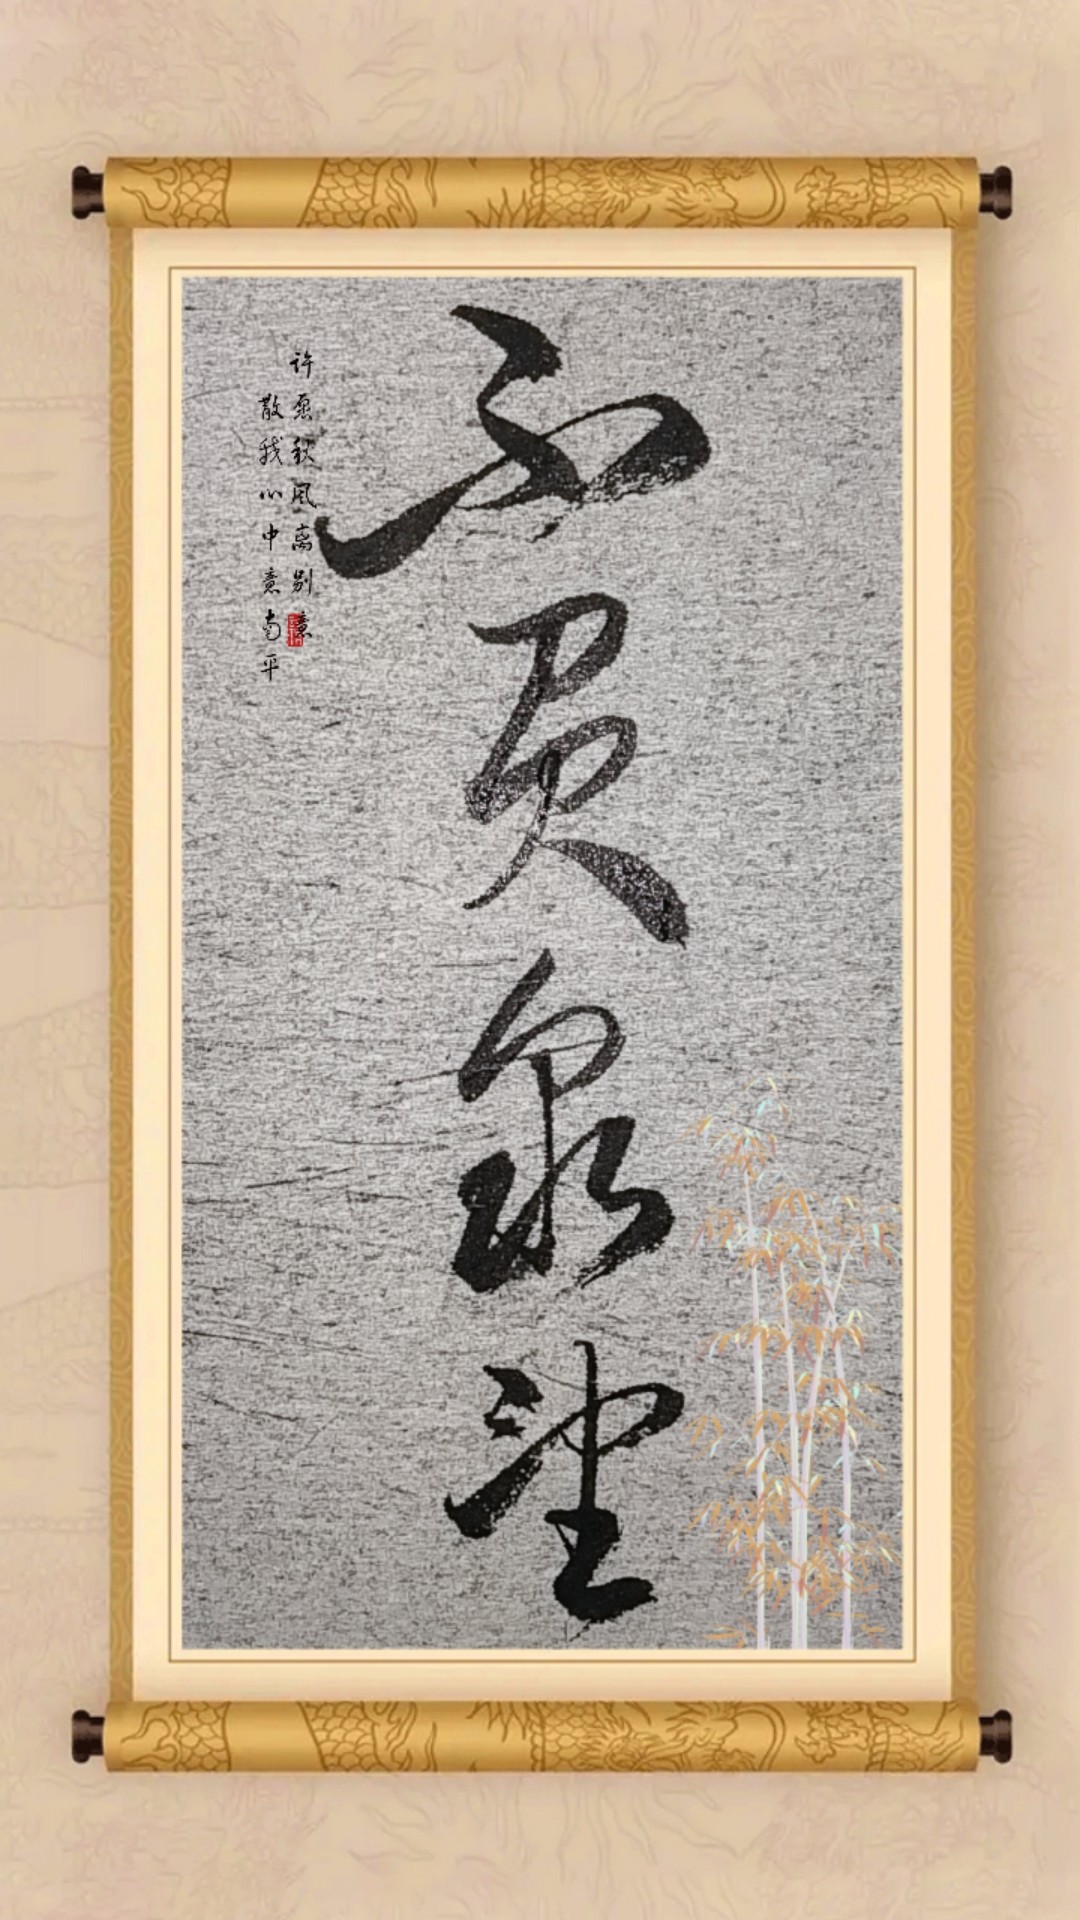 不负众望
许愿秋风离别意
散我心中意南平